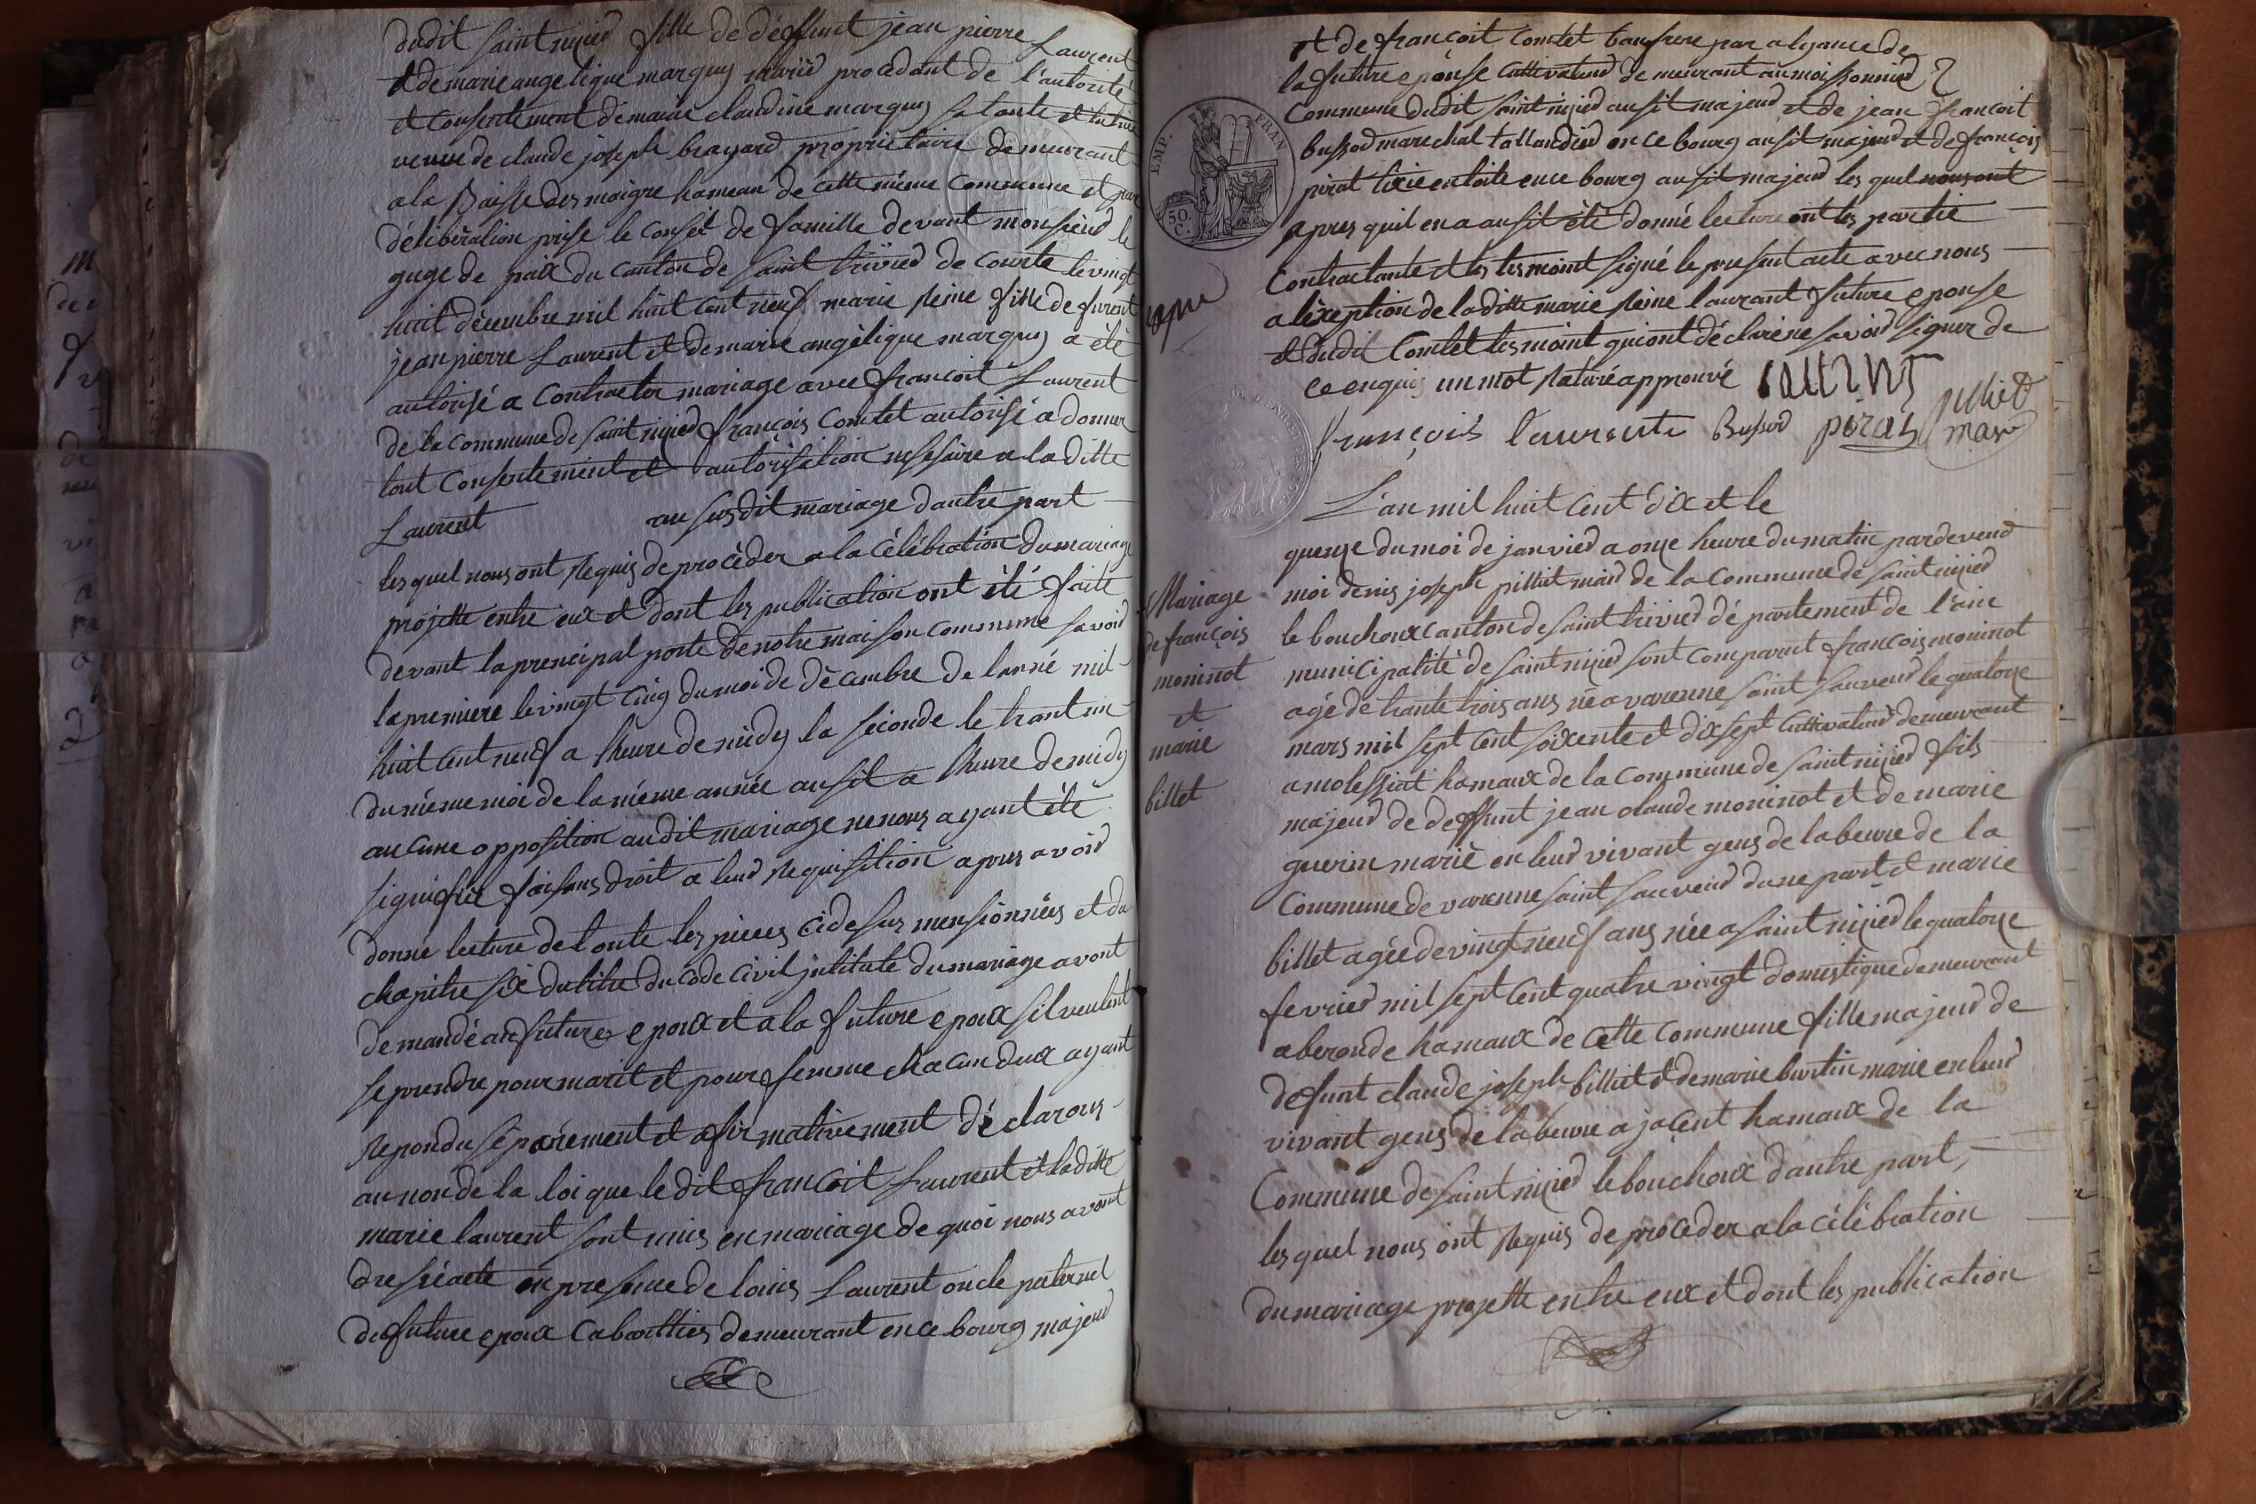 dudit saint nizied fille de déffunt jean pierre Laurent
et de marie angelique marquis mariéd procedant de l'autorité
et consentement de marie claudine marquis sa tante et tutrice
veuve de claude joseph brayard propriétaire demeurant
a la Baisse des moigre hameau de cette même commune et par
délibèration prise le conseit de famille devant monsieud le
guge de paix du canton de saint trivied de courte le vingt
huit décembre mil huit cent neuf marie reine fille de furent
jean pierre Laurent et de marie angèlique marquis a été
autorisé a contracter mariage avec francoit Laurent
de la commune de saint nizied françois Comtet autorisé a donner
tout consentement et l'autorisation nesesaire a la ditte
Laurent au susdit mariage dautre part
les quel nous ont requis de procèder a la célébration du mariage
projetté entre eux et dont les publication ont été faite
devant la principal porte de notre maison commune savoid
la premiere le vingt cinq du moi de décembre de lanné mil
huit cent neuf a lheure de midy la seconde le trant un
du même moi de la même année ausit a lheure de midy
aucune opposition au dit mariage ne nous ayant été
signifiée faisans droit a leud requisition apres avoid
donné lecture de toute les pieces cidesus mensionnées et du
chapitre six du titre du code civil intitulé du mariage avont
demandé au futures epoux et a la future epoux sil veulent
se prendre pour marit et pour femme chacun deux ayant
repondu séparément et afirmativement déclarons
au non de la loi que le dit francoit Laurent et la ditte
marie laurent sont unis en mariage de quoi nous avont
dressé acte en presence de louis Laurent oncle paternel
du future epoux cabarttier demeurant en ce bourg majeud
et de francoit comtet beaufrere par alyance de
la future epouse cultivateud demeurant au moissonnied
commune dudit saint nizied ausit majeud et de jean francoit
bussod marechal tallandied en ce bourg ausit majeud et de françois
pirat tixie en toile en ce bourg ausit majeud les quel nous ont
apres quil en a ausit été donné lecture ont les partie
contractante et les tesmoint signé le present acte avec nous
a lexeption de la ditte marie reine laurant future epouse
et dudit Comtet tesmoint qui ont déclaré ne savoid signer de
ce enquis un mot raturé approuvé laurent
françois laurent Bussod piras pilliet
mar
EMP. FRAN
50. C.
L'an mil huit cent dix et le
quenze du moi de janvied a onze heure du matin pardevend
moi denis joseph pilliut maid de la commune de saint nizied
le bouchoux canton de saint trivied dépantement de l'ain
municipalité de saint nizied sont comparut françois moninot
agé de trante trois ans né a varenne saint sauveud le quatorze
mars mil sept cent soixente et dix sept cultivateud demeurant
a molessiat hamaux de la commune de saint nizied fils
majeud de deffunt jean claude moninot et de marie
guerin marié en leud vivant gens de labeure de la
commune de varenne saint sauveud dune part et marie
billet agée de vingt neuf ans née a saint nizied le quatorze
fevried mil sept cent quatre vingt domestique demeurant
a beronde hamaux de cette commune fille majeud de
defunt claude joseph billiet et de marie burtin marie en leud
vivant gens de labeure a jacent hamaux de la
commune de saint nizied le bouchoux dautre part,
les quel nous ont requis de procèder a la célébration
du mariage projetté entre eux et dont les publication
Mariage
de françois
moninot
et
marie
billet